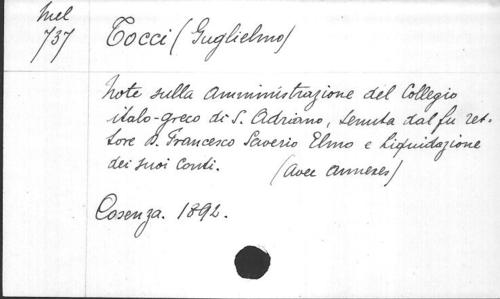 Mel
737
Tocci (Guglielmo)
Note sulla Amministrazione del Collegio
italo-greco di S. Adriano, tenuta dal fu ret-
tore D. Francesco Saverio Elmo e liquidazione
dei suoi conti. (avec annexes)
Cosenza. 1892.